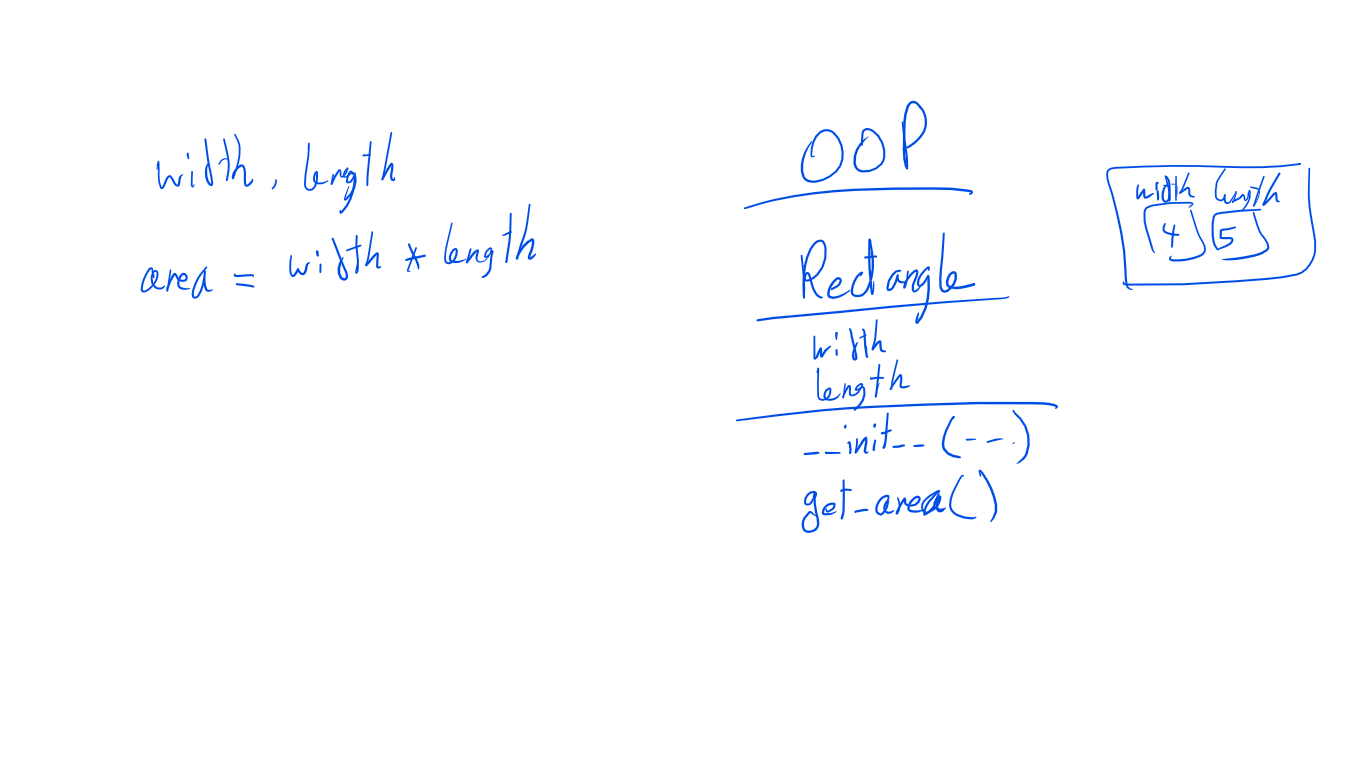 width, length
area = width * length
OOP
Rectangle
width
length
__init__(---)
get_area()
width length
4 5